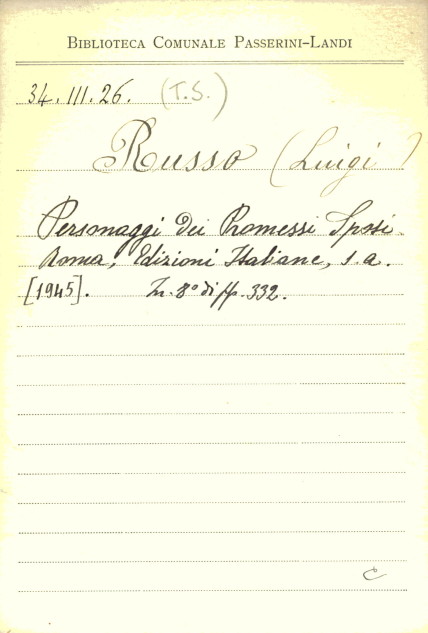 BIBLIOTECA COMUNALE PASSERINI-LANDI
34.III.26. (T.S.)
Russo (Luigi)
Personaggi dei Promessi Sposi.
Roma, Edizioni Italiane, s.a.
[1945]. In 8° di pp. 332.
c